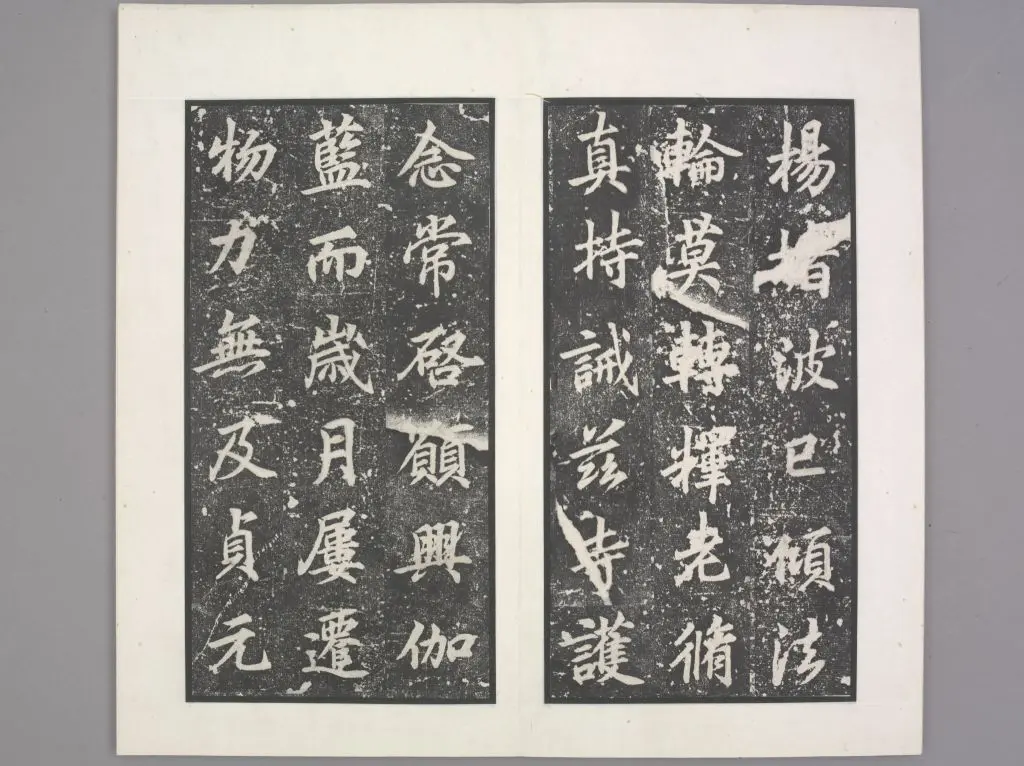 楊波已傾法
輪莫轉輝老脩
真持誡茲寺護
念常啓願興伽
藍而歲月屢遷
物力無及貞元